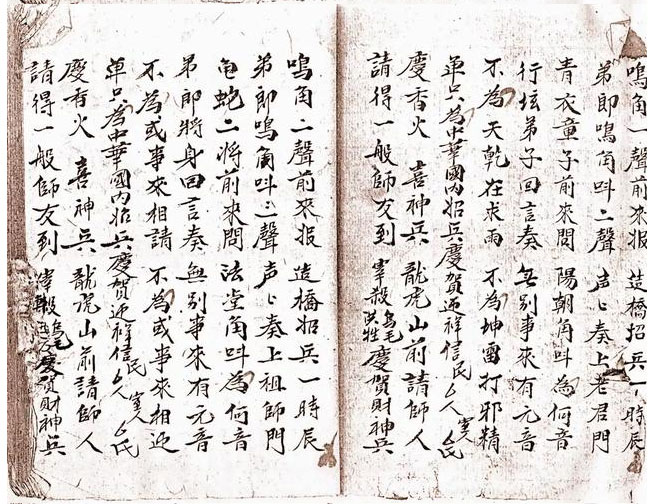 鳴角一聲前來报 造橋招兵一時辰
弟郎鳴角呌二聲 声〻奏上老君門
青衣童子前來問 陽朝角呌為何音
行坛弟子回言奏 無别事來有元音
不為天乾在求雨 不為坤雷打邪精
单只為中華國内招兵慶賀迎祥信民厶人室人厶氏
慶香火 喜神兵 龍虎山前請師人
請得一般師友到 宰殺烏毛洪牲慶賀財神兵
鳴角二聲前來报 造橋招兵一時辰
弟郎鳴角呌三聲 声〻奏上祖師門
龟蛇二將前來問 法堂角呌為何音
弟郎將身回言奏 無别事來有元音
不為或事來相請 不為或事來相迎
单只為中華國内招兵慶賀迎祥信民厶人室人厶氏
慶香火 喜神兵 龍虎山前請師人
請得一般師友到 宰殺烏毛慶賀財神兵